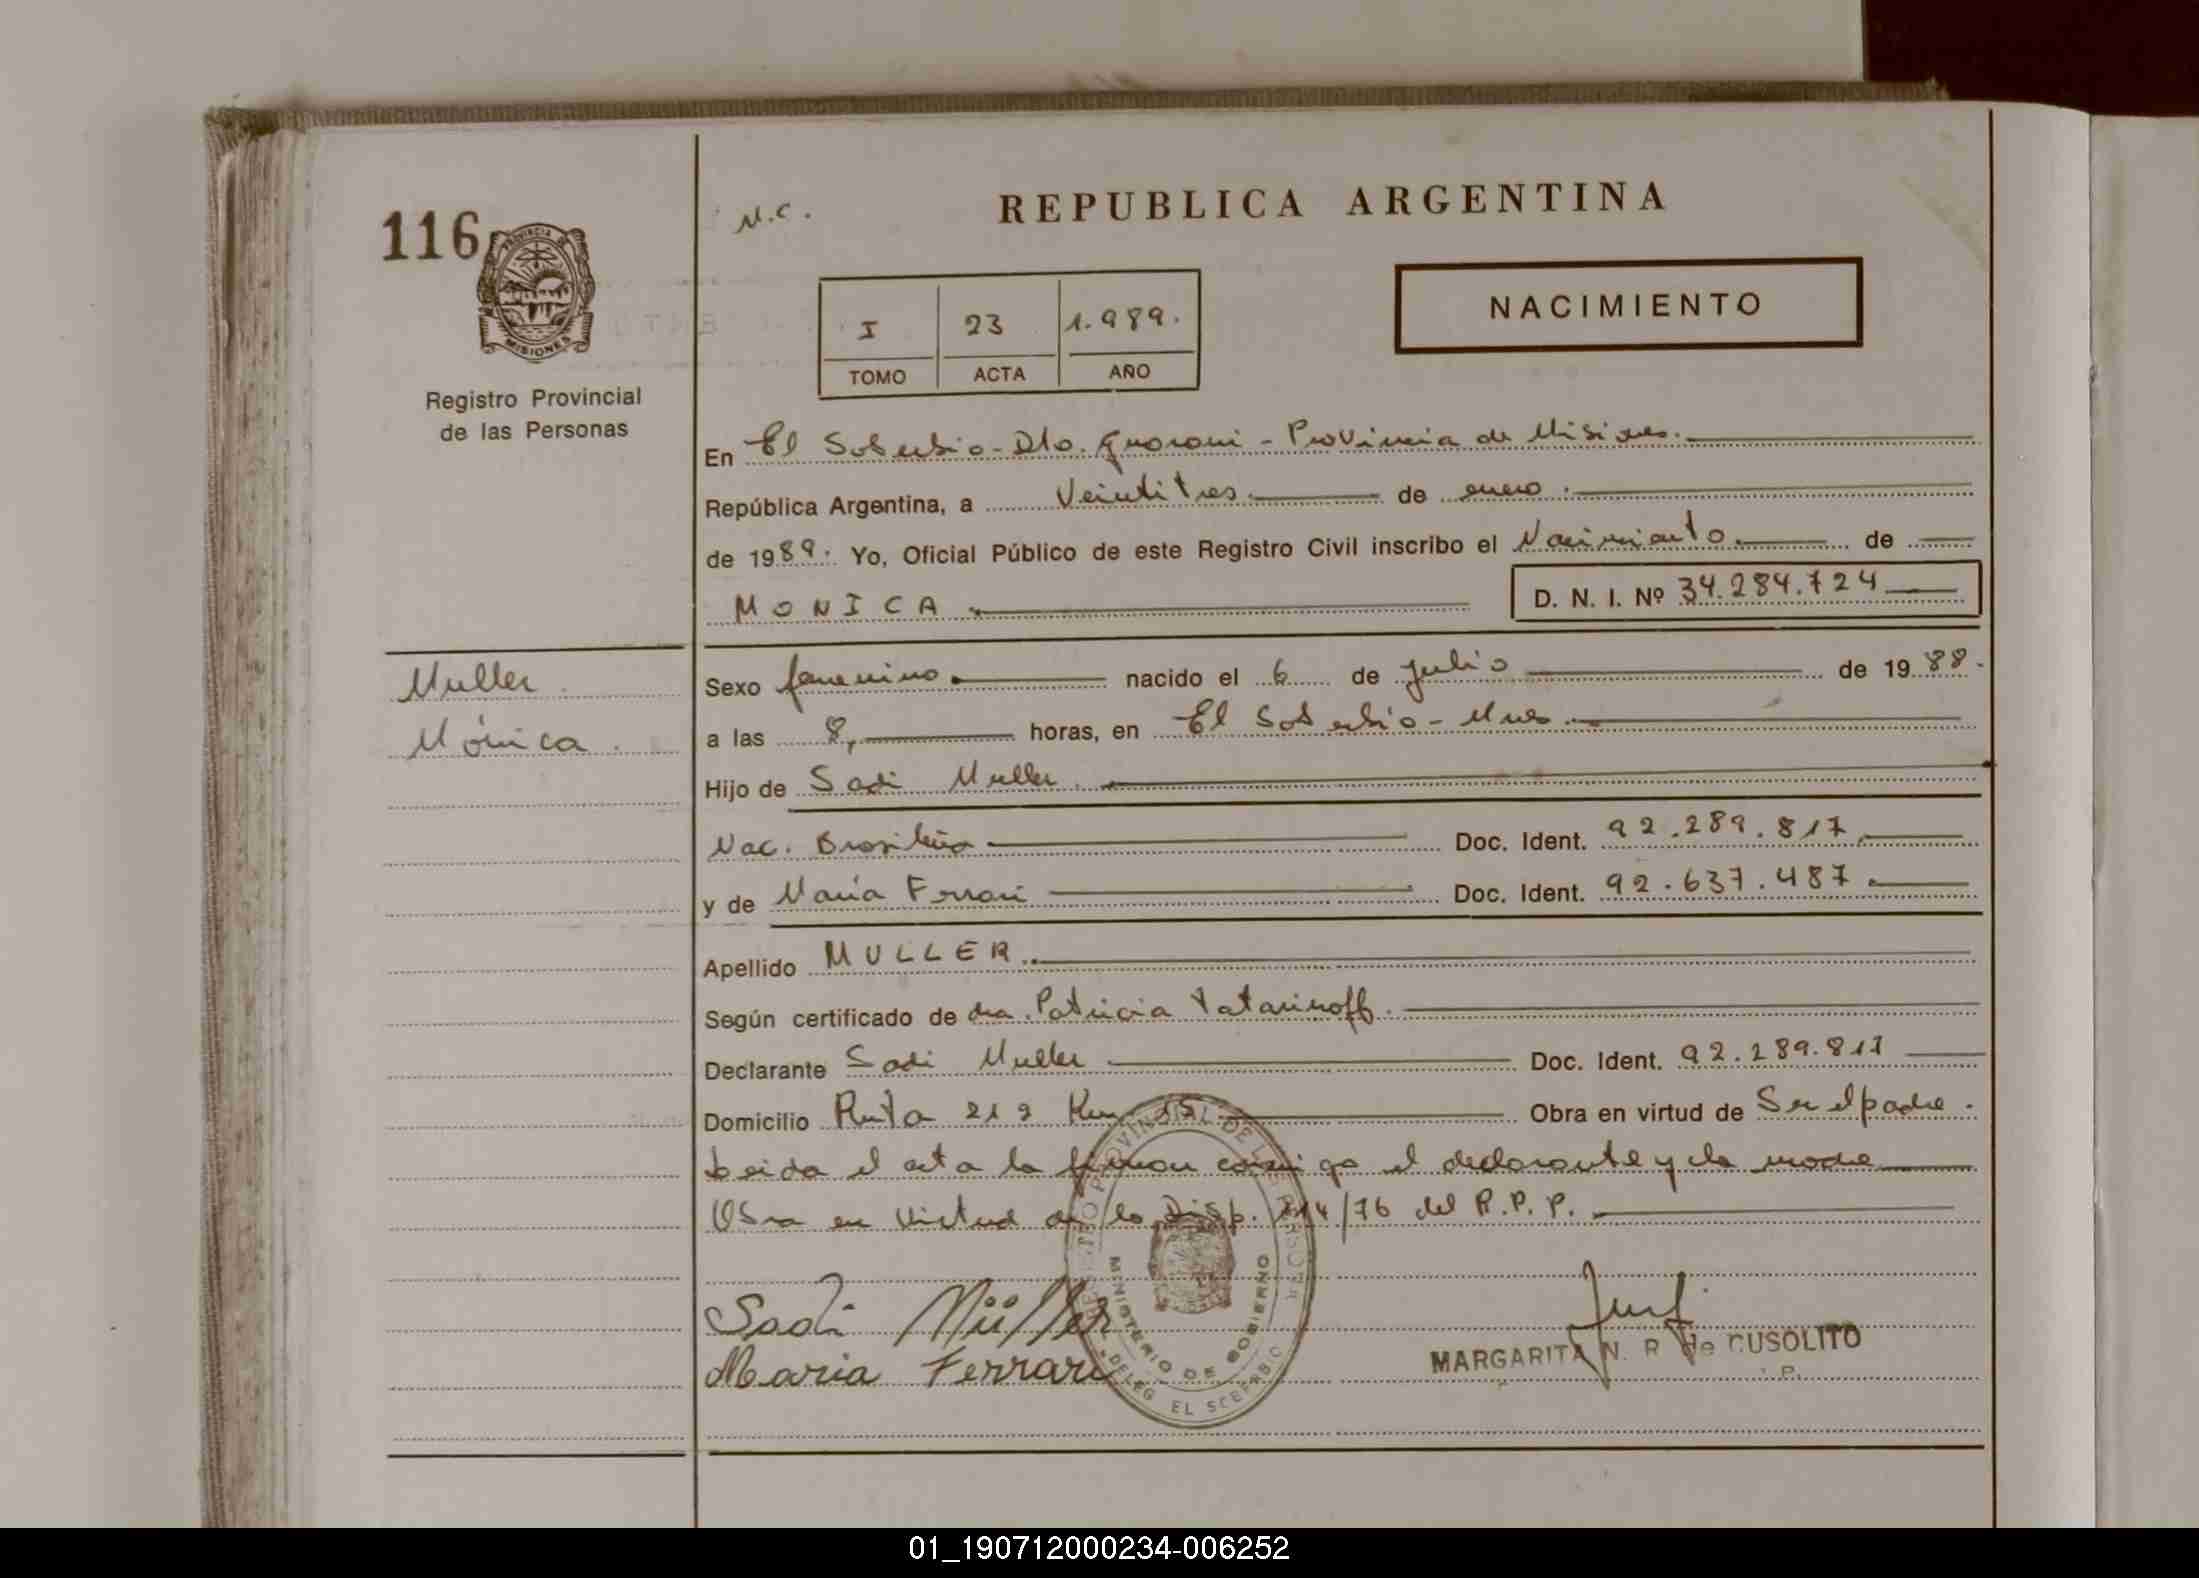 116
PROVINCIA DE
MISIONES
Registro Provincial
de las Personas
N.C.
REPUBLICA ARGENTINA
I 23 1.989.
TOMO ACTA AÑO
NACIMIENTO
En El Soberbio - Dto. Guarani - Provincia de Misiones.
República Argentina, a Veintitres de enero.
de 1989. Yo, Oficial Público de este Registro Civil inscribo el Nacimiento de
MONICA D. N. I. Nº 34.284.724
Muller
Mónica.
Sexo femenino. nacido el 6 de julio de 1988.
a las 8, horas, en El Soberbio - Mnes.
Hijo de Sadi Muller.
Nac. Brasileña Doc. Ident. 92.289.817
y de Maria Ferrari Doc. Ident. 92.637.487.
Apellido MULLER.
Según certificado de dra. Patricia Tatarinoff.
Declarante Sadi Muller Doc. Ident. 92.289.817
Domicilio Ruta 212 Km 15. Obra en virtud de Ser el padre.
Leida el acta la firman conmigo el declarante y la madre
Obra en virtud de la Disp. 214/76 del R.P.P.
Sadi Müller
Maria Ferrari
REGISTRO PROVINCIAL DE LAS PERSONAS
MINISTERIO DE GOBIERNO
DELEG EL SOBERBIO
MARGARITA N. R. de CUSOLITO
01_190712000234-006252